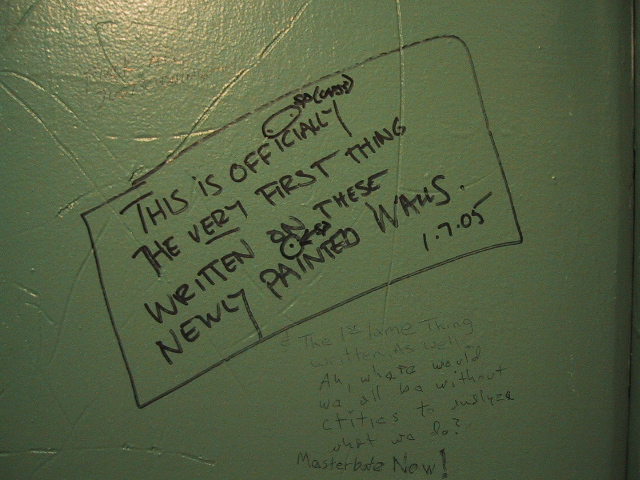 THIS IS OFFICIALLY
THE VERY FIRST THING
WRITTEN ON THESE
NEWLY PAINTED WALLS.
1.7.05
& The 1st lame Thing
written As well.
Ah, where would
we all be without
critics to analyze
what we do?
Masterbate Now!